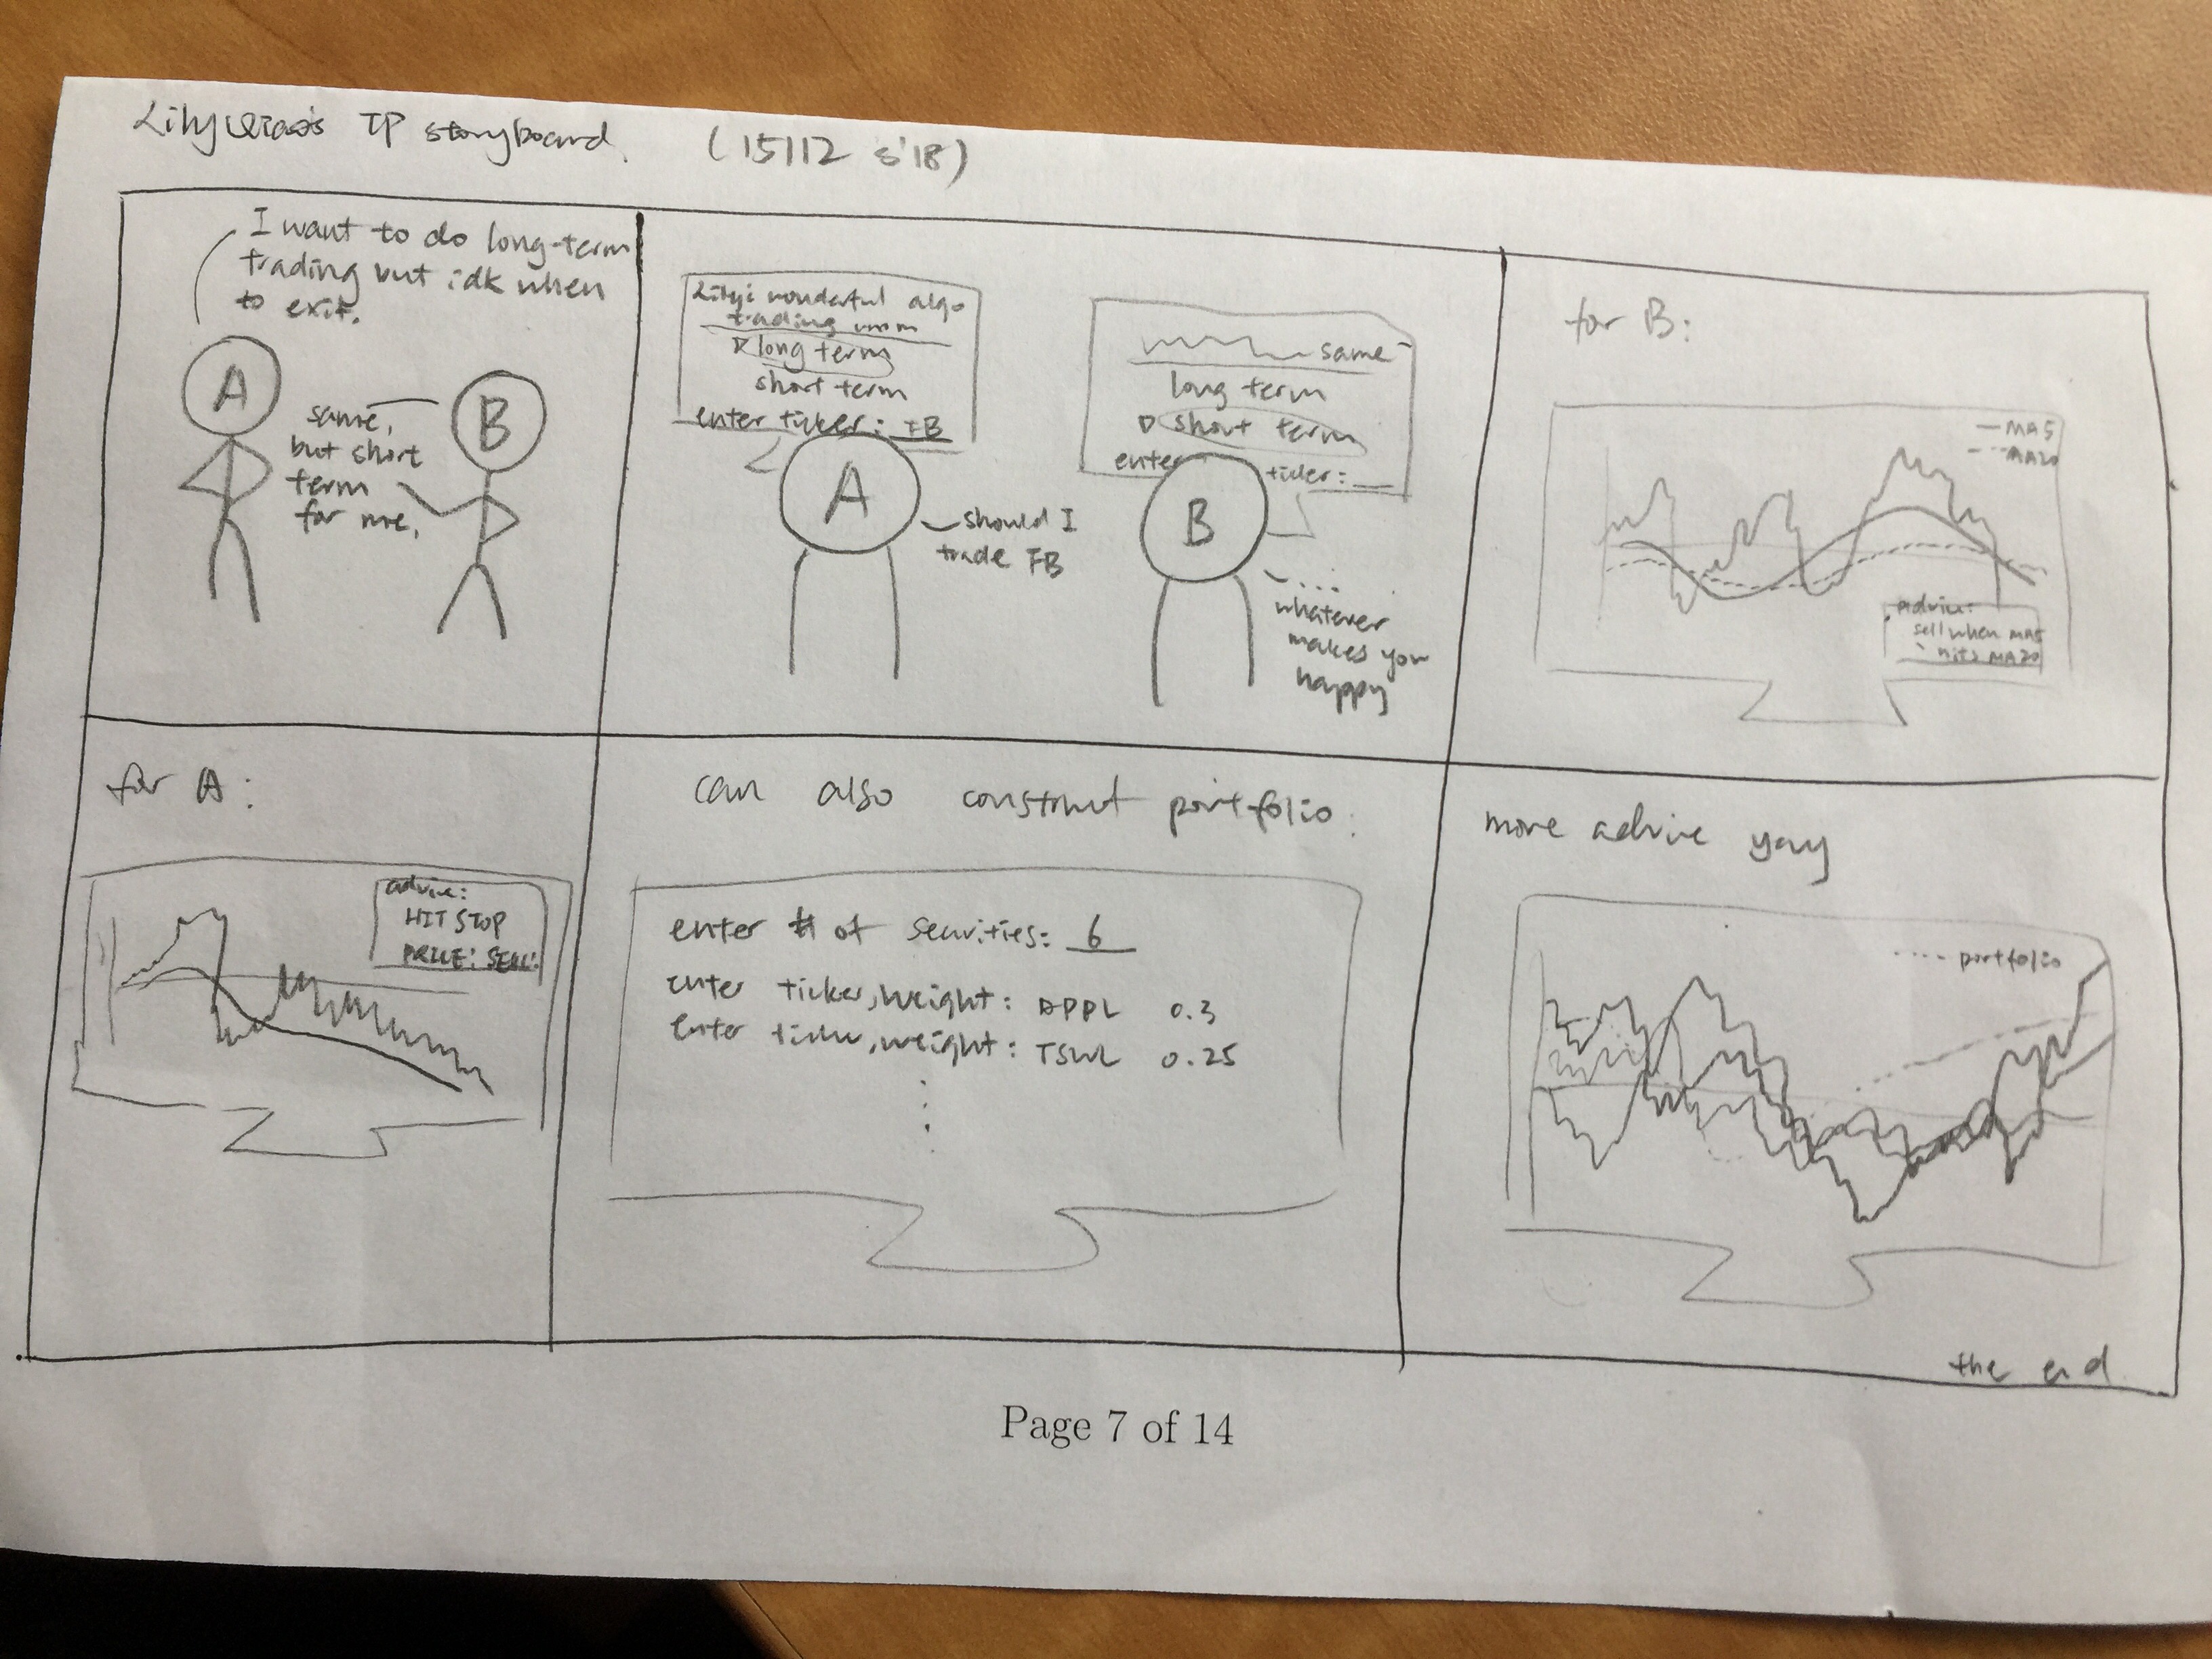 TP storyboard. (15112 S'18)
I want to do long-term
trading but idk when
to exit.
A
same,
but short
term
for me.
B
wonderful algo
trading
long term
short term
enter ticker: FB
A
should I
trade FB
same
long term
short term
enter ticker:
B
...
whatever
makes you
happy
for B:
— MA5
--- MA20
advice:
sell when MA5
hits MA20
for A:
advice:
HIT STOP
PRICE! SELL!
can also construct portfolio:
enter # of securities: 6
enter ticker, weight: APPL 0.3
enter ticker, weight: 0.25
more advice yay
.... portfolio
the end
Page 7 of 14